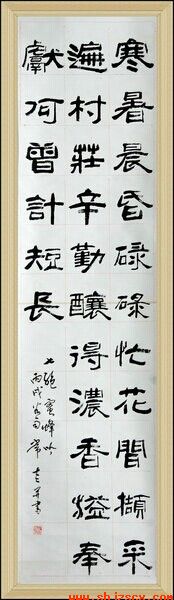 寒暑晨昏碌碌忙花間擷采
遍村莊辛勤釀得濃香溢奉
獻何曾計短長
七絕蜜蜂吟
丙戌